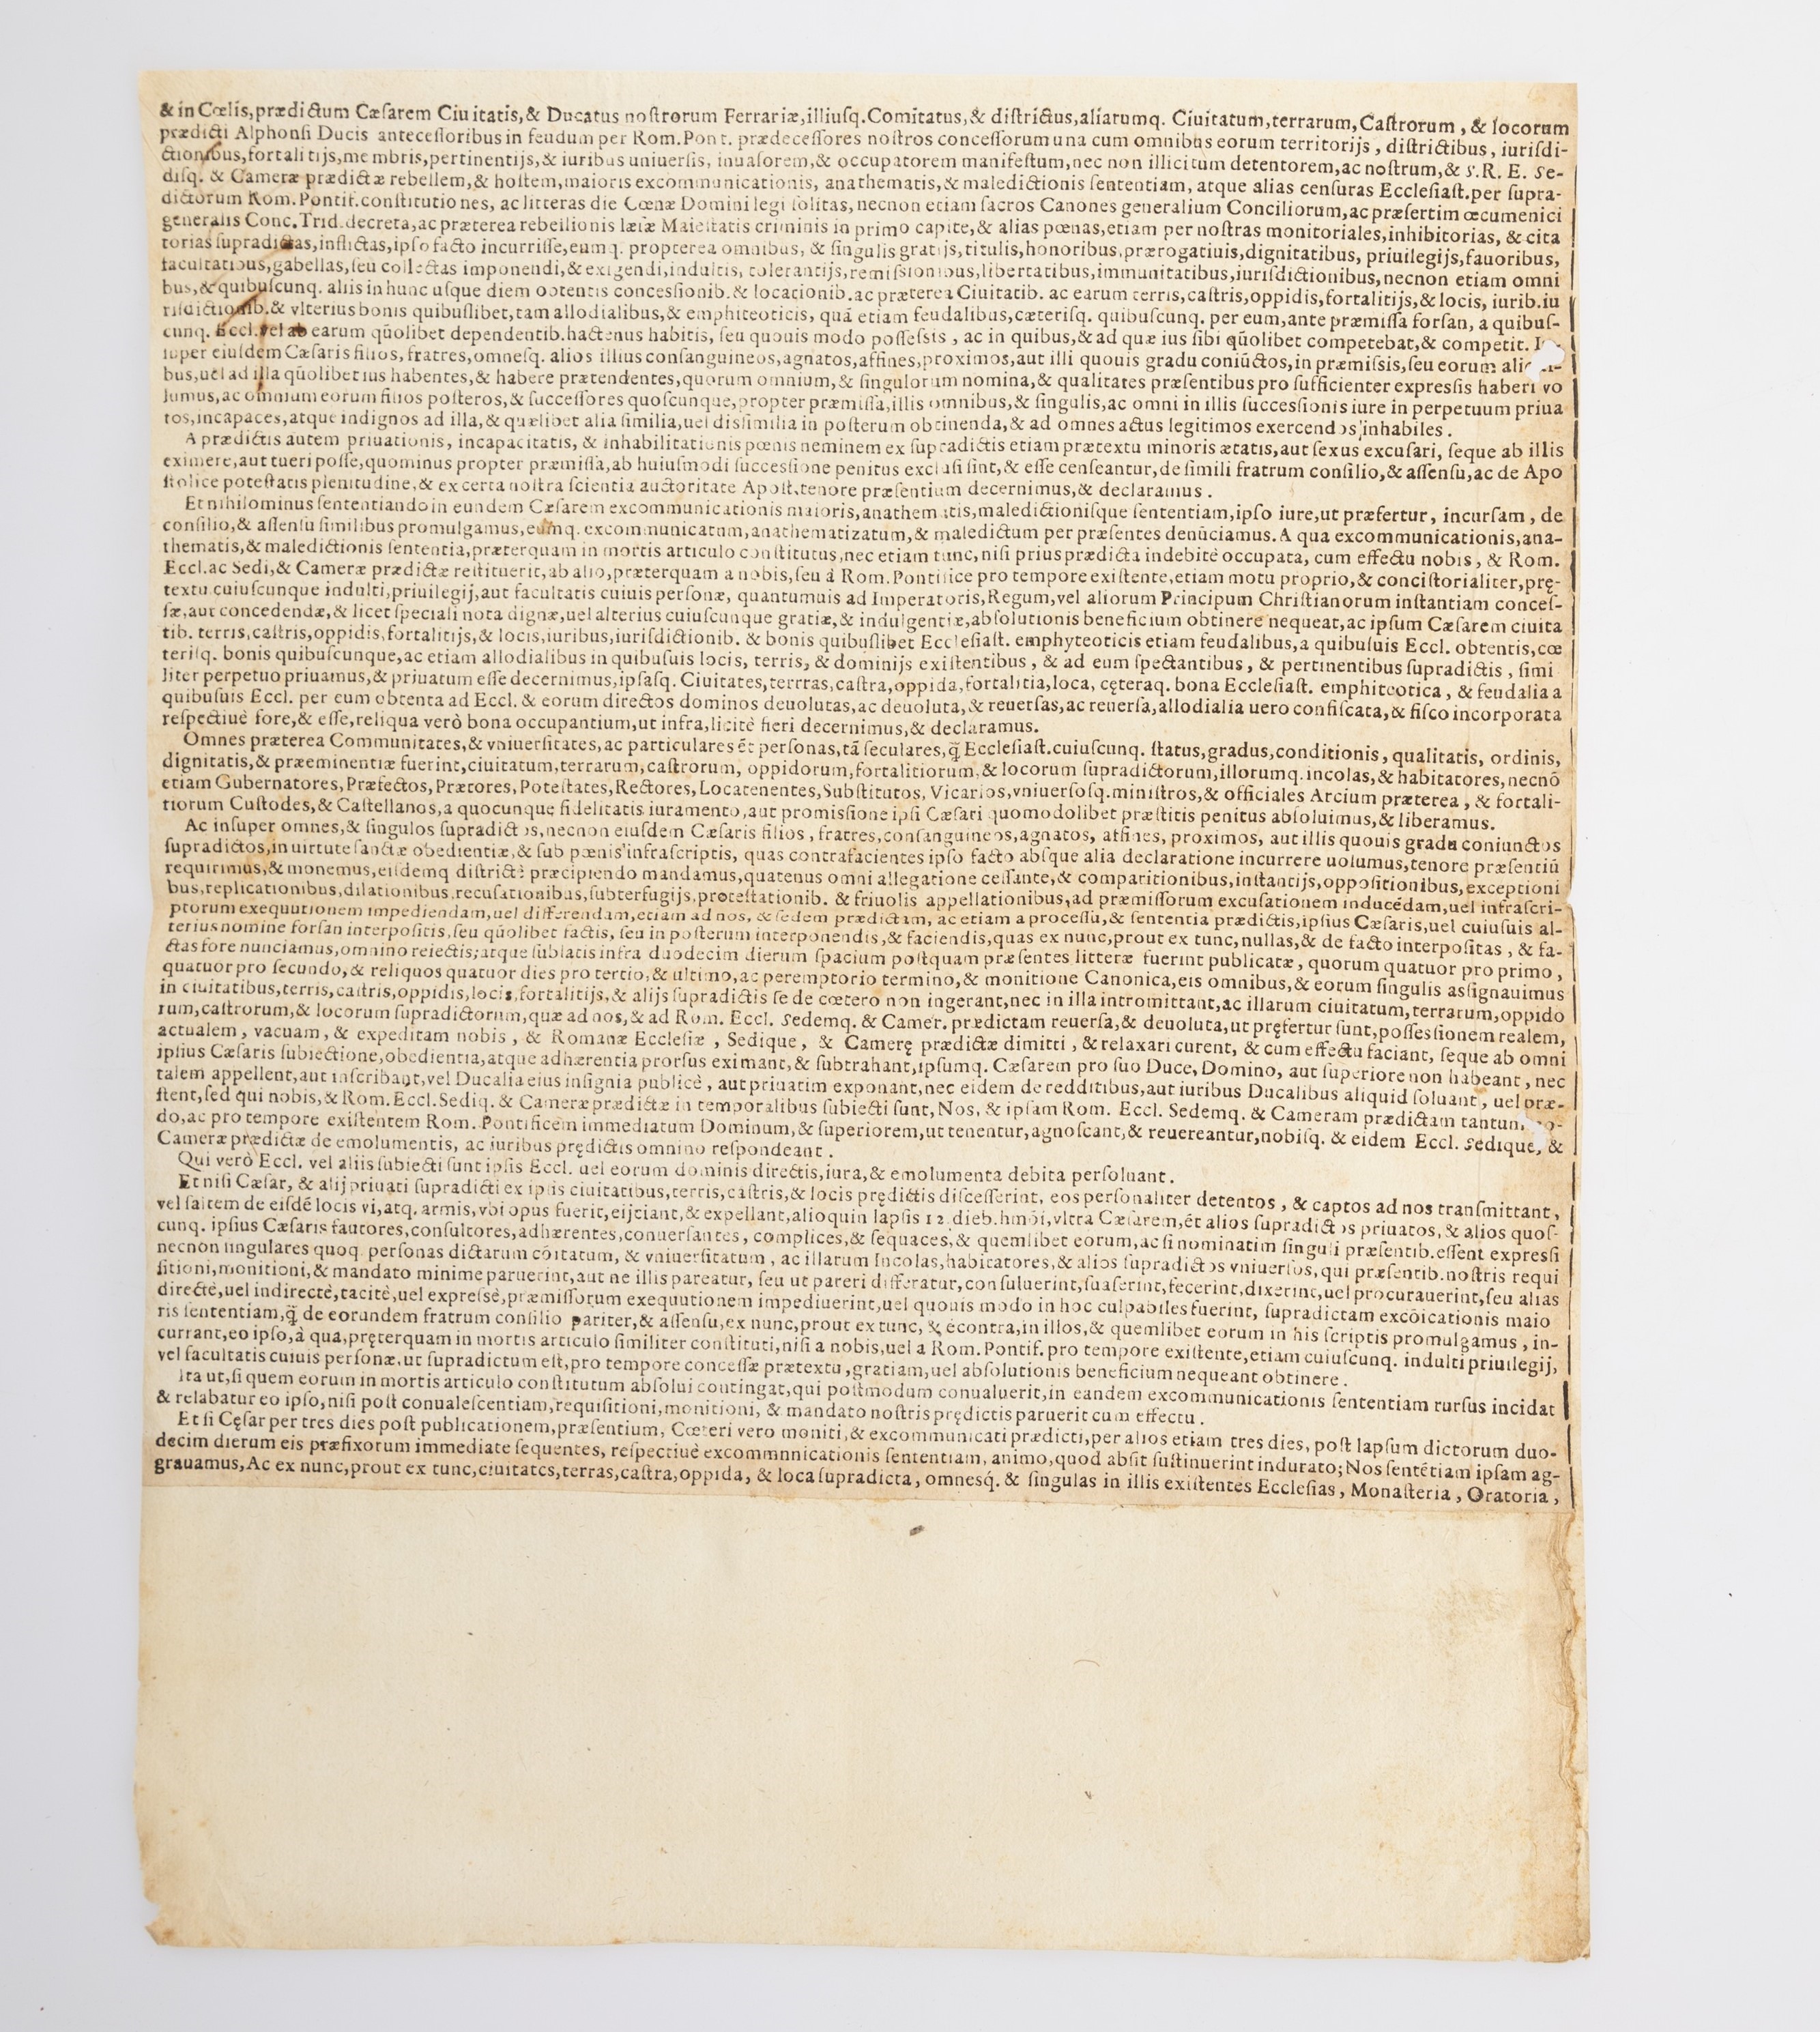 & in Cœlis, prædictum Cæſarem Ciuitatis, & Ducatus noſtrorum Ferrariæ, illiuſq. Comitatus, & diſtrictus, aliarumq. Ciuitatum, terrarum, Caſtrorum, & locorum
prædicti Alphonſi Ducis anteceſſoribus in feudum per Rom. Pont. prædeceſſores noſtros conceſſorum una cum omnibus eorum territorijs, diſtrictibus, iuriſdi-
ctionibus, fortalitijs, membris, pertinentijs, & iuribus uniuerſis, inuaſorem, & occupatorem manifeſtum, nec non illicitum detentorem, ac noſtrum, & S. R. E. Se-
diſq. & Cameræ prædictæ rebellem, & hoſtem, maioris excommunicationis, anathematis, & maledictionis ſententiam, atque alias cenſuras Eccleſiaſt. per ſupra-
dictorum Rom. Pontif. conſtitutiones, ac litteras die Cœnæ Domini legi ſolitas, necnon etiam ſacros Canones generalium Conciliorum, ac præſertim œcumenici
generalis Conc. Trid. decreta, ac præterea rebellionis læſæ Maieſtatis criminis in primo capite, & alias pœnas, etiam per noſtras monitoriales, inhibitorias, & cita
torias ſupradictas, inflictas, ipſo facto incurriſſe, eumq. propterea omnibus, & ſingulis gratijs, titulis, honoribus, prærogatiuis, dignitatibus, priuilegijs, fauoribus,
facultatibus, gabellas, ſeu collectas imponendi, & exigendi, indultis, tolerantijs, remiſſionibus, libertatibus, immunitatibus, iuriſdictionibus, necnon etiam omni
bus, & quibuſcunq. aliis in hunc uſque diem obtentis conceſſionib. & locationib. ac præterea Ciuitatib. ac earum terris, caſtris, oppidis, fortalitijs, & locis, iurib. iu
riſdictionib. & vlterius bonis quibuſlibet, tam allodialibus, & emphiteoticis, quá etiam feudalibus, cæteriſq. quibuſcunq. per eum, ante præmiſſa forſan, a quibuſ-
cunq. Eccl. vel ab earum qūolibet dependentib. hactenus habitis, ſeu quouis modo poſſeſsis, ac in quibus, & ad quæ ius ſibi qūolibet competebat, & competit.
ſuper eiuſdem Cæſaris filios, fratres, omneſq. alios illius conſanguineos, agnatos, affines, proximos, aut illi quouis gradu coniūctos, in præmiſsis, ſeu eorum
bus, uel ad illa qūolibet ius habentes, & habere prætendentes, quorum omnium, & ſingulorum nomina, & qualitates præſentibus pro ſufficienter expreſsis haberi vo
lumus, ac omnium eorum filios poſteros, & ſucceſſores quoſcunque, propter præmiſſa, illis omnibus, & ſingulis, ac omni in illis ſucceſsionis iure in perpetuum priua
tos, incapaces, atque indignos ad illa, & quælibet alia ſimilia, uel diſsimilia in poſterum obtinenda, & ad omnes actus legitimos exercendos inhabiles.
A prædictis autem priuationis, incapacitatis, & inhabilitationis pœnis neminem ex ſupradictis etiam prætextu minoris ætatis, aut ſexus excuſari, ſeque ab illis
eximere, aut tueri poſſe, quominus propter præmiſſa, ab huiuſmodi ſucceſſione penitus excluſi ſint, & eſſe cenſeantur, de ſimili fratrum conſilio, & aſſenſu, ac de Apo
ſtolice poteſtatis plenitudine, & ex certa noſtra ſcientia auctoritate Apoſt. tenore præſentium decernimus, & declaramus.
Et nihilominus ſententiando in eundem Cæſarem excommunicationis maioris, anathematis, maledictioniſque ſententiam, ipſo iure, ut præfertur, incurſam, de
conſilio, & aſſenſu ſimilibus promulgamus, eumq. excommunicatum, anathematizatum, & maledictum per præſentes denūciamus. A qua excommunicationis, ana-
thematis, & maledictionis ſententia, præterquam in mortis articulo conſtitutus, nec etiam tunc, niſi prius prædicta indebitè occupata, cum effectu nobis, & Rom.
Eccl. ac Sedi, & Cameræ prædictæ reſtituerit, ab alio, præterquam a nobis, ſeu à Rom. Pontifice pro tempore exiſtente, etiam motu proprio, & conciſtorialiter, prę-
textu cuiuſcunque indulti, priuilegij, aut facultatis cuiuis perſonæ, quantumuis ad Imperatoris, Regum, vel aliorum Principum Chriſtianorum inſtantiam conceſ-
ſæ, aut concedendæ, & licet ſpeciali nota dignæ, uel alterius cuiuſcunque gratiæ, & indulgentiæ, abſolutionis beneficium obtinere nequeat, ac ipſum Cæſarem ciuita
tib. terris, caſtris, oppidis, fortalitijs, & locis, iuribus, iuriſdictionib. & bonis quibuſlibet Eccleſiaſt. emphyteoticis etiam feudalibus, a quibuſuis Eccl. obtentis, cœ
teriſq. bonis quibuſcunque, ac etiam allodialibus in quibuſuis locis, terris, & dominijs exiſtentibus, & ad eum ſpectantibus, & pertinentibus ſupradictis, ſimi
liter perpetuo priuamus, & priuatum eſſe decernimus, ipſaſq. Ciuitates, terrras, caſtra, oppida, fortalitia, loca, cęteraq. bona Eccleſiaſt. emphiteotica, & feudalia a
quibuſuis Eccl. per eum obtenta ad Eccl. & eorum directos dominos deuolutas, ac deuoluta, & reuerſas, ac reuerſa, allodialia uero confiſcata, & fiſco incorporata
reſpectiuè fore, & eſſe, reliqua verò bona occupantium, ut infra, licitè fieri decernimus, & declaramus.
Omnes præterea Communitates, & vniuerſitates, ac particulares ét perſonas, tā ſeculares, q̃ Eccleſiaſt. cuiuſcunq. ſtatus, gradus, conditionis, qualitatis, ordinis,
dignitatis, & præeminentiæ fuerint, ciuitatum, terrarum, caſtrorum, oppidorum, fortalitiorum, & locorum ſupradictorum, illorumq. incolas, & habitatores, necnō
etiam Gubernatores, Præfectos, Prætores, Poteſtates, Rectores, Locatenentes, Subſtitutos, Vicarios, vniuerſoſq. miniſtros, & officiales Arcium præterea, & fortali-
tiorum Cuſtodes, & Caſtellanos, a quocunque fidelitatis iuramento, aut promiſſione ipſi Cæſari quomodolibet præſtitis penitus abſoluimus, & liberamus.
Ac inſuper omnes, & ſingulos ſupradictos, necnon eiuſdem Cæſaris filios, fratres, conſanguineos, agnatos, affines, proximos, aut illis quouis gradu coniunctos
ſupradictos, in uirtute ſanctæ obedientiæ, & ſub pœnis infraſcriptis, quas contrafacientes ipſo facto abſque alia declaratione incurrere uolumus, tenore præſentiū
requirimus, & monemus, eiſdemq diſtrictè præcipiendo mandamus, quatenus omni allegatione ceſſante, & comparitionibus, inſtantijs, oppoſitionibus, exceptioni
bus, replicationibus, dilationibus, recuſationibus, ſubterfugijs, proteſtationib. & friuolis appellationibus, ad præmiſſorum excuſationem inducédam, uel infraſcri-
ptorum exequutionem impediendam, uel differendam, etiam ad nos, & ſedem prædictam, ac etiam a proceſſu, & ſententia prædictis, ipſius Cæſaris, uel cuiuſuis al-
terius nomine forſan interpoſitis, ſeu qūolibet factis, ſeu in poſterum interponendis, & faciendis, quas ex nunc, prout ex tunc, nullas, & de facto interpoſitas, & fa-
ctas fore nunciamus, omnino reiectis; atque ſublatis infra duodecim dierum ſpacium poſtquam præſentes litteræ fuerint publicatæ, quorum quatuor pro primo,
quatuor pro ſecundo, & reliquos quatuor dies pro tertio, & ultimo, ac peremptorio termino, & monitione Canonica, eis omnibus, & eorum ſingulis aſsignauimus
in ciuitatibus, terris, caſtris, oppidis, locis, fortalitijs, & alijs ſupradictis ſe de cœtero non ingerant, nec in illa intromittant, ac illarum ciuitatum, terrarum, oppido
rum, caſtrorum, & locorum ſupradictorum, quæ ad nos, & ad Rom. Eccl. Sedemq. & Camer. prædictam reuerſa, & deuoluta, ut pręfertur ſunt, poſſeſsionem realem,
actualem, vacuam, & expeditam nobis, & Romanæ Eccleſiæ, Sedique, & Camerę prædictæ dimitti, & relaxari curent, & cum effectu faciant, ſeque ab omni
ipſius Cæſaris ſubiectione, obedientia, atque adhærentia prorſus eximant, & ſubtrahant, ipſumq. Cæſarem pro ſuo Duce, Domino, aut ſuperiore non habeant, nec
talem appellent, aut inſcribant, vel Ducalia eius inſignia publicè, aut priuatim exponant, nec eidem de redditibus, aut iuribus Ducalibus aliquid ſoluant, uel præ-
ſtent, ſed qui nobis, & Rom. Eccl. Sediq. & Cameræ prædictæ in temporalibus ſubiecti ſunt, Nos, & ipſam Rom. Eccl. Sedemq. & Cameram prædictam
do, ac pro tempore exiſtentem Rom. Pontificem immediatum Dominum, & ſuperiorem, ut tenentur, agnoſcant, & reuereantur, nobiſq. & eidem Eccl. Sedique, &
Cameræ prædictæ de emolumentis, ac iuribus prędictis omnino reſpondeant.
Qui verò Eccl. vel aliis ſubiecti ſunt ipſis Eccl. uel eorum dominis directis, iura, & emolumenta debita perſoluant.
Et niſi Cæſar, & alij priuati ſupradicti ex ipſis ciuitatibus, terris, caſtris, & locis prędictis diſceſſerint, eos perſonaliter detentos, & captos ad nos tranſmittant,
vel ſaltem de eiſdē locis vi, atq. armis, vbi opus fuerit, eijciant, & expellant, alioquin lapſis 12. dieb. hmōi, vltra Cæſarem, ét alios ſupradictos priuatos, & alios quoſ-
cunq. ipſius Cæſaris fautores, conſultores, adhærentes, conuerſantes, complices, & ſequaces, & quemlibet eorum, ac ſi nominatim ſinguli præſentib. eſſent expreſſi
necnon ſingulares quoq. perſonas dictarum cōitatum, & vniuerſitatum, ac illarum Incolas, habitatores, & alios ſupradictos vniuerſos, qui præſentib. noſtris requi
ſitioni, monitioni, & mandato minime paruerint, aut ne illis pareatur, ſeu ut pareri differatur, conſuluerint, ſuaſerint, fecerint, dixerint, uel procurauerint, ſeu alias
directè, uel indirectè, tacitè, uel expreſsè, præmiſſorum exequutionem impediuerint, uel quouis modo in hoc culpabiles fuerint, ſupradictam excōicationis maio
ris ſententiam, q̃ de eorundem fratrum conſilio pariter, & aſſenſu, ex nunc, prout ex tunc, & écontra, in illos, & quemlibet eorum in his ſcriptis promulgamus, in-
currant, eo ipſo, à qua, pręterquam in mortis articulo ſimiliter conſtituti, niſi a nobis, uel a Rom. Pontif. pro tempore exiſtente, etiam cuiuſcunq. indulti priuilegij,
vel facultatis cuiuis perſonæ, ut ſupradictum eſt, pro tempore conceſſæ prætextu, gratiam, uel abſolutionis beneficium nequeant obtinere.
Ita ut, ſi quem eorum in mortis articulo conſtitutum abſolui contingat, qui poſtmodum conualuerit, in eandem excommunicationis ſententiam rurſus incidat
& relabatur eo ipſo, niſi poſt conualeſcentiam, requiſitioni, monitioni, & mandato noſtris prędictis paruerit cum effectu.
Et ſi Cęſar per tres dies poſt publicationem, præſentium, Cœteri vero moniti, & excommunicati prædicti, per alios etiam tres dies, poſt lapſum dictorum duo-
decim dierum eis præfixorum immediate ſequentes, reſpectiuè excommnnicationis ſententiam, animo, quod abſit ſuſtinuerint indurato; Nos ſentétiam ipſam ag-
grauamus, Ac ex nunc, prout ex tunc, ciuitates, terras, caſtra, oppida, & loca ſupradicta, omneſq́. & ſingulas in illis exiſtentes Eccleſias, Monaſteria, Oratoria,